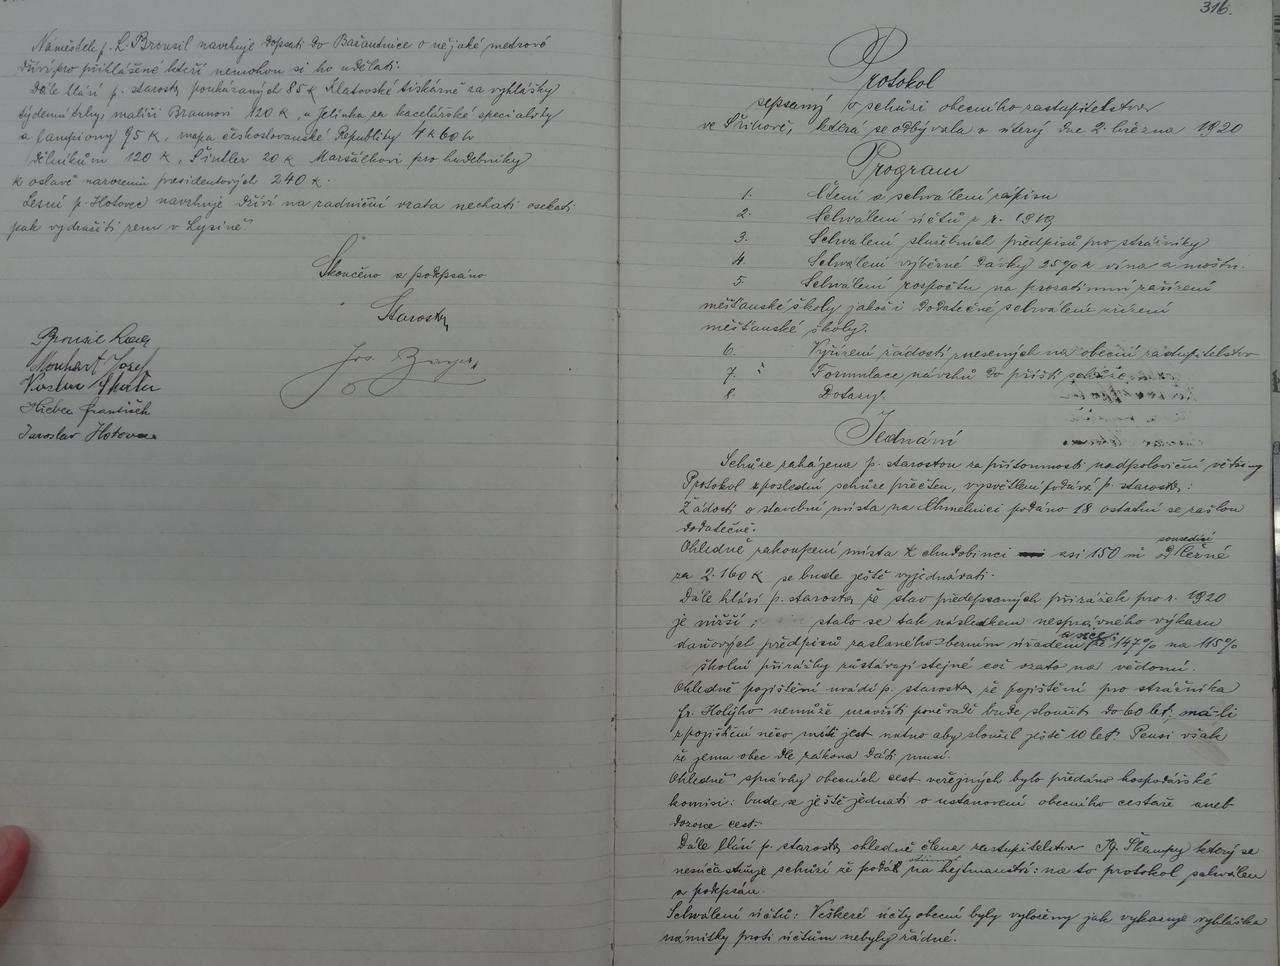 Náměstek p. L. Brousil navrhuje dopsati do Bažantnice o nějaké metrové
dříví pro přihlášené kteří nemohou si ho udělati.
Dále hlásí p. starosta poukázaných 85 K Klatovské tiskárně za vyhlášky
týdenní trhy, malíři Braunovi 120 K, u Jelínka za kacelářské specialisty
a lampiony 95 K, mapa československé Republiky 4 K 60 h
dělníkům 120 K, Šintler 20 K Maršálkovi pro hudebníky
k oslavě narozenin presidentových 240 K.
Lesní p. Hotovec navrhuje dříví na radniční vrata nechati osekati
pak vydražiti zem v Lysině.
Skončeno a podepsáno
Starosta
Brousil
Monhart Josef
František
Jaroslav Hotovec
316.
Protokol
sepsaný o schůzi obecního zastupitelstva
ve Švihově, která se odbývala v úterý dne 2. března 1920
Program
1. Čtení a schválení zápisu
2. Schválení účtů z r. 1919
3. Schválení služebních předpisů pro strážníky
4. Schválení výběrné dávky 25% z vína a moštu.
5. Schválení rozpočtu na prozatimní zařízení
měšťanské školy jakož i dodatečné schválení zřízení
měšťanské školy.
6. Vyřízení žádostí vnesených na obecní zastupitelstvo
7. Formulace návrhů do příští schůze.
8. Dotazy.
Jednání
Schůze zahájena p. starostou za přítomnosti nadpoloviční většiny
Protokol z poslední schůze přečten, vysvětlení podává p. starosta:
Žádostí o stavební místa na Chmelnici podáno 18 ostatní se zašlou
dodatečně.
Ohledně zakoupení místa k chudobinci asi 150 m² sousedící
za 2.160 K se bude ještě vyjednávati.
Dále hlásí p. starosta že stav předepsaných přirážek pro r. 1920
je nižší, stalo se tak následkem nesprávného výkazu
daňových předpisů zaslaného berním úřadem a sice: ze 147% na 115%
školní přirážky zůstávají stejné což vzato na vědomí.
Ohledně pojištění uvádí p. starosta že pojištění pro strážníka
fr. Holýho nemůže uzavříti poněvadž bude sloužit do 60 let; má-li
z pojištění něco míti jest nutno aby sloužil ještě 10 let. Pensi však
že jemu obec dle zákona dáti musí.
Ohledně správky obecních cest veřejných bylo předáno hospodářské
komisi: bude se ještě jednati o ustanovení obecního cestaře aneb
dozorce cest.
Dále hlásí p. starosta ohledně člena zastupitelstva Ig. Škampy který se
nesúčastňuje schůzí že podá na hejtmanství: na to protokol schválen
a podepsán.
Schválení účtů: Veškeré účty obecní byly vyloženy jak vykazuje vyhláška
námitky proti účtům nebyly žádné.